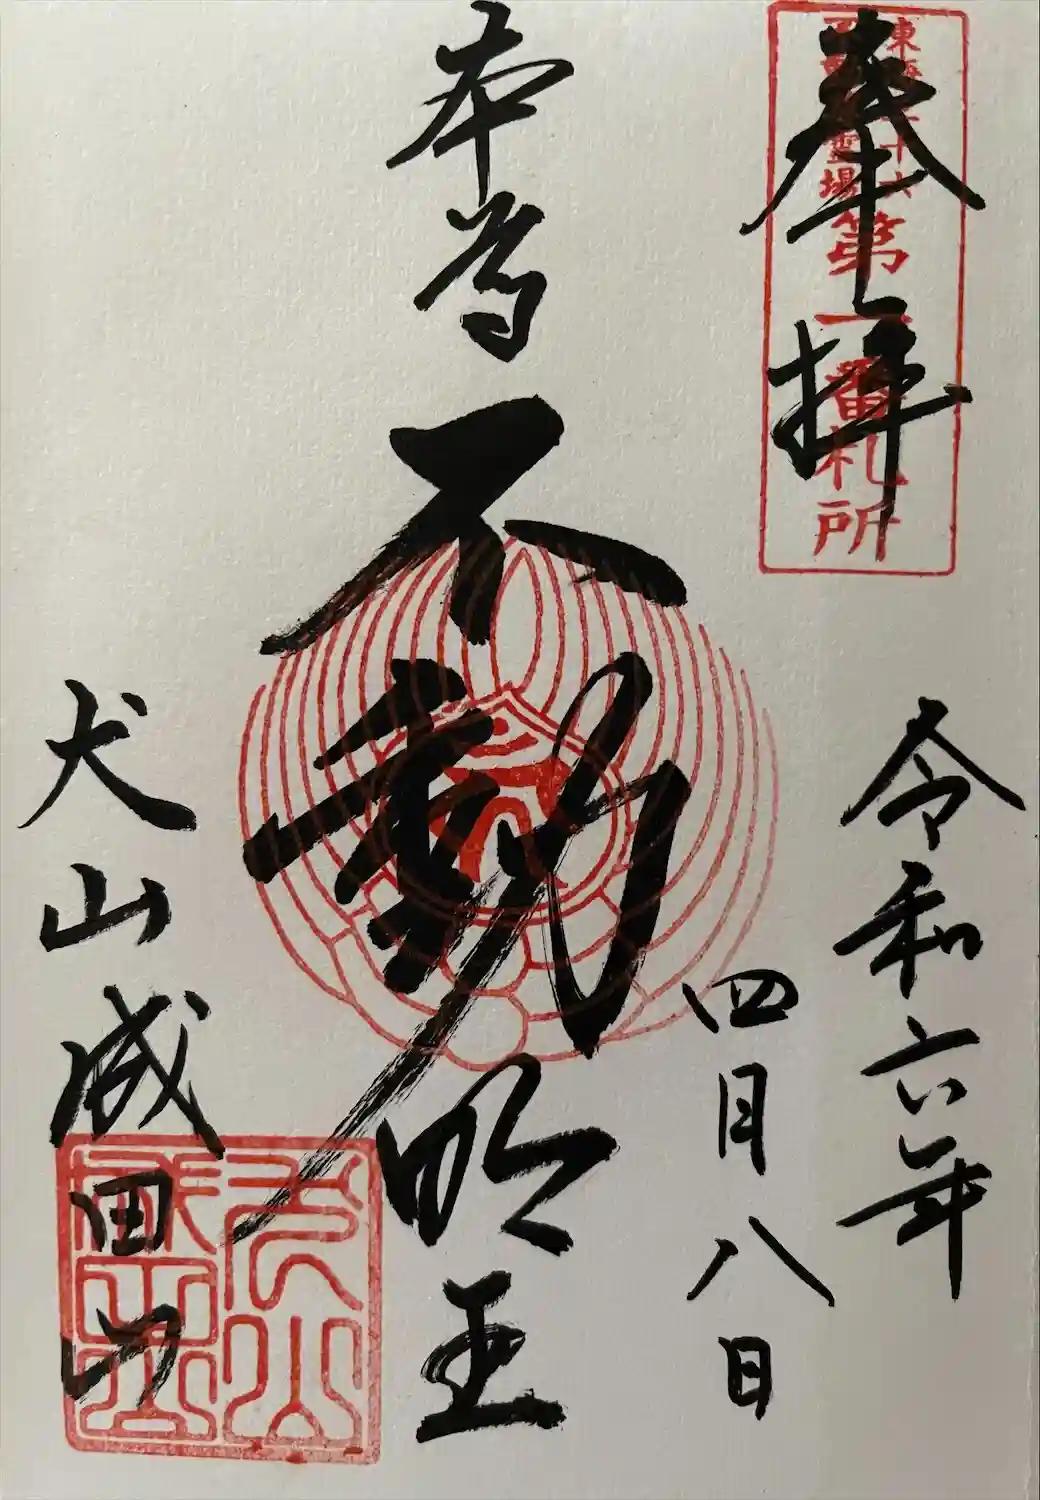 奉拝
東海三十六
不動尊霊場
第一番札所
令和六年
四月八日
本尊
不動明王
犬山成田山
犬山
成田山